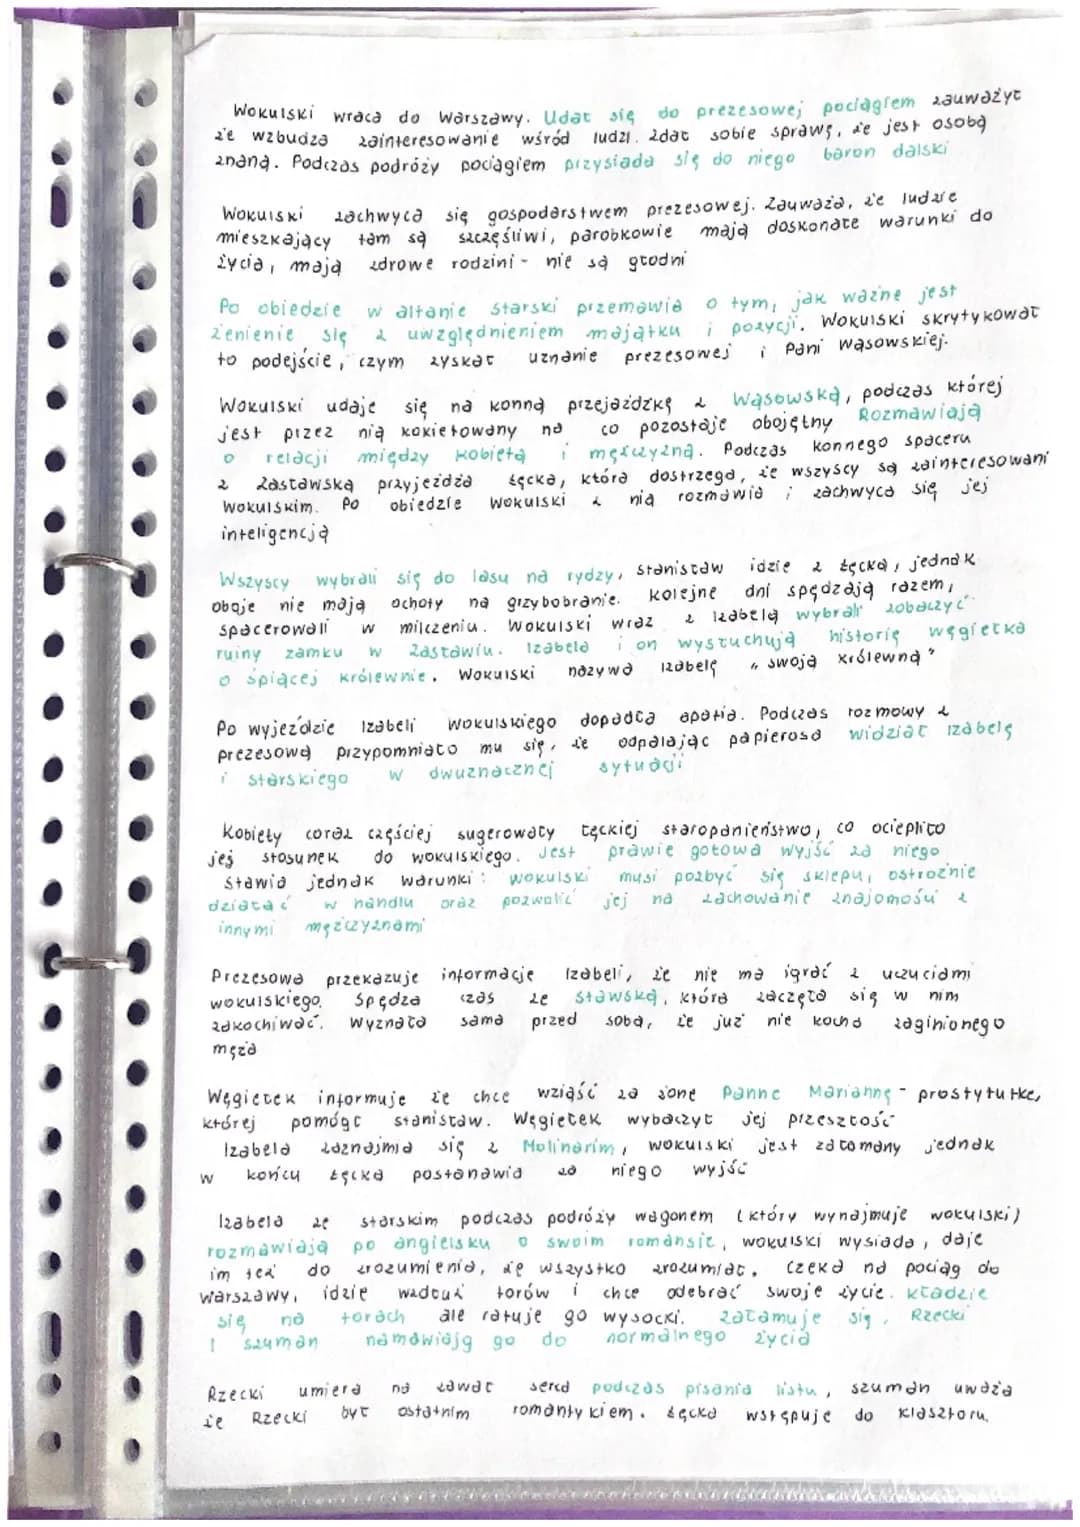 Wokulski wraca do Warszawy. Udał się do prezesowej pociągiem zauważył
że wzbudza zainteresowanie wśród ludzi. zdał sobie sprawę, że jest osobą
znaną. Podczas podróży pociągiem przysiada się do niego baron dalski
Wokulski zachwyca się gospodarstwem prezesowej. Zauważa, że ludzie
mieszkający tam są szczęśliwi, parobkowie mają doskonałe warunki do
życia, mają zdrowe rodzini - nie są głodni
Po obiedzie w altanie Starski przemawia o tym, jak ważne jest
żenienie się z uwzględnieniem majątku i pozycji. Wokulski skrytykował
to podejście, czym zyskał uznanie prezesowej i Pani Wąsowskiej.
Wokulski udaje się na konną przejażdżkę z Wąsowską, podczas której
jest przez nią kokietowany na co pozostaje obojętny Rozmawiają
o relacji między kobietą i mężczyzną. Podczas konnego spaceru
z Zasławską przyjeżdża Łęcka, która dostrzega, że wszyscy są zainteresowani
Wokulskim. Po obiedzie Wokulski z nią rozmawia i zachwyca się jej
inteligencją
Wszyscy wybrali się do lasu na rydzy, Stanisław idzie z Łęcką, jednak
oboje nie mają ochoty na grzybobranie. Kolejne dni spędzają razem,
spacerowali w milczeniu. Wokulski wraz z Izabelą wybrali zobaczyć
ruiny zamku w Zasławiu. Izabela i on wysłuchują historię węgiełka
o śpiącej królewnie. Wokulski nazywa Izabelę "swoją królewną"
Po wyjeździe Izabeli Wokulskiego dopadła apatia. Podczas rozmowy z
prezesową przypomniało mu się, że odpalając papierosa widział Izabelę
i Starskiego w dwuznacznej sytuacji
Kobiety coraz częściej sugerowały Łęckiej staropanieństwo, co ociepliło
jej stosunek do Wokulskiego. Jest prawie gotowa wyjść za niego
Stawia jednak warunki: Wokulski musi pozbyć się sklepu, ostrożnie
działać w handlu oraz pozwolić jej na zachowanie znajomości z
innymi mężczyznami
Prezesowa przekazuje informacje Izabeli, że nie ma igrać z uczuciami
Wokulskiego. Spędza czas ze Stawską, która zaczęła się w nim
zakochiwać. Wyznała sama przed sobą, że już nie kocha zaginionego
męża
Węgiełek informuje że chce wziąść za żonę Pannę Mariannę - prostytutkę,
której pomógł Stanisław. Węgiełek wybaczył jej przeszłość
Izabela zaznajmia się z Molinarim, Wokulski jest załamany jednak
w końcu Łęcka postanawia za niego wyjść
Izabela ze Starskim podczas podróży wagonem (który wynajmuje Wokulski)
rozmawiają po angielsku o swoim romansie, Wokulski wysiada, daje
im też do zrozumienia, że wszystko zrozumiał. Czeka na pociąg do
Warszawy, idzie wzdłuż torów i chce odebrać swoje życie. Kładzie
się na torach ale ratuje go Wysocki. Załamuje się. Rzecki
i szuman namawiają go do normalnego życia
Rzecki umiera na zawał serca podczas pisania listu, szuman uważa
że Rzecki był ostatnim romantykiem. Łęcka wstępuje do klasztoru.